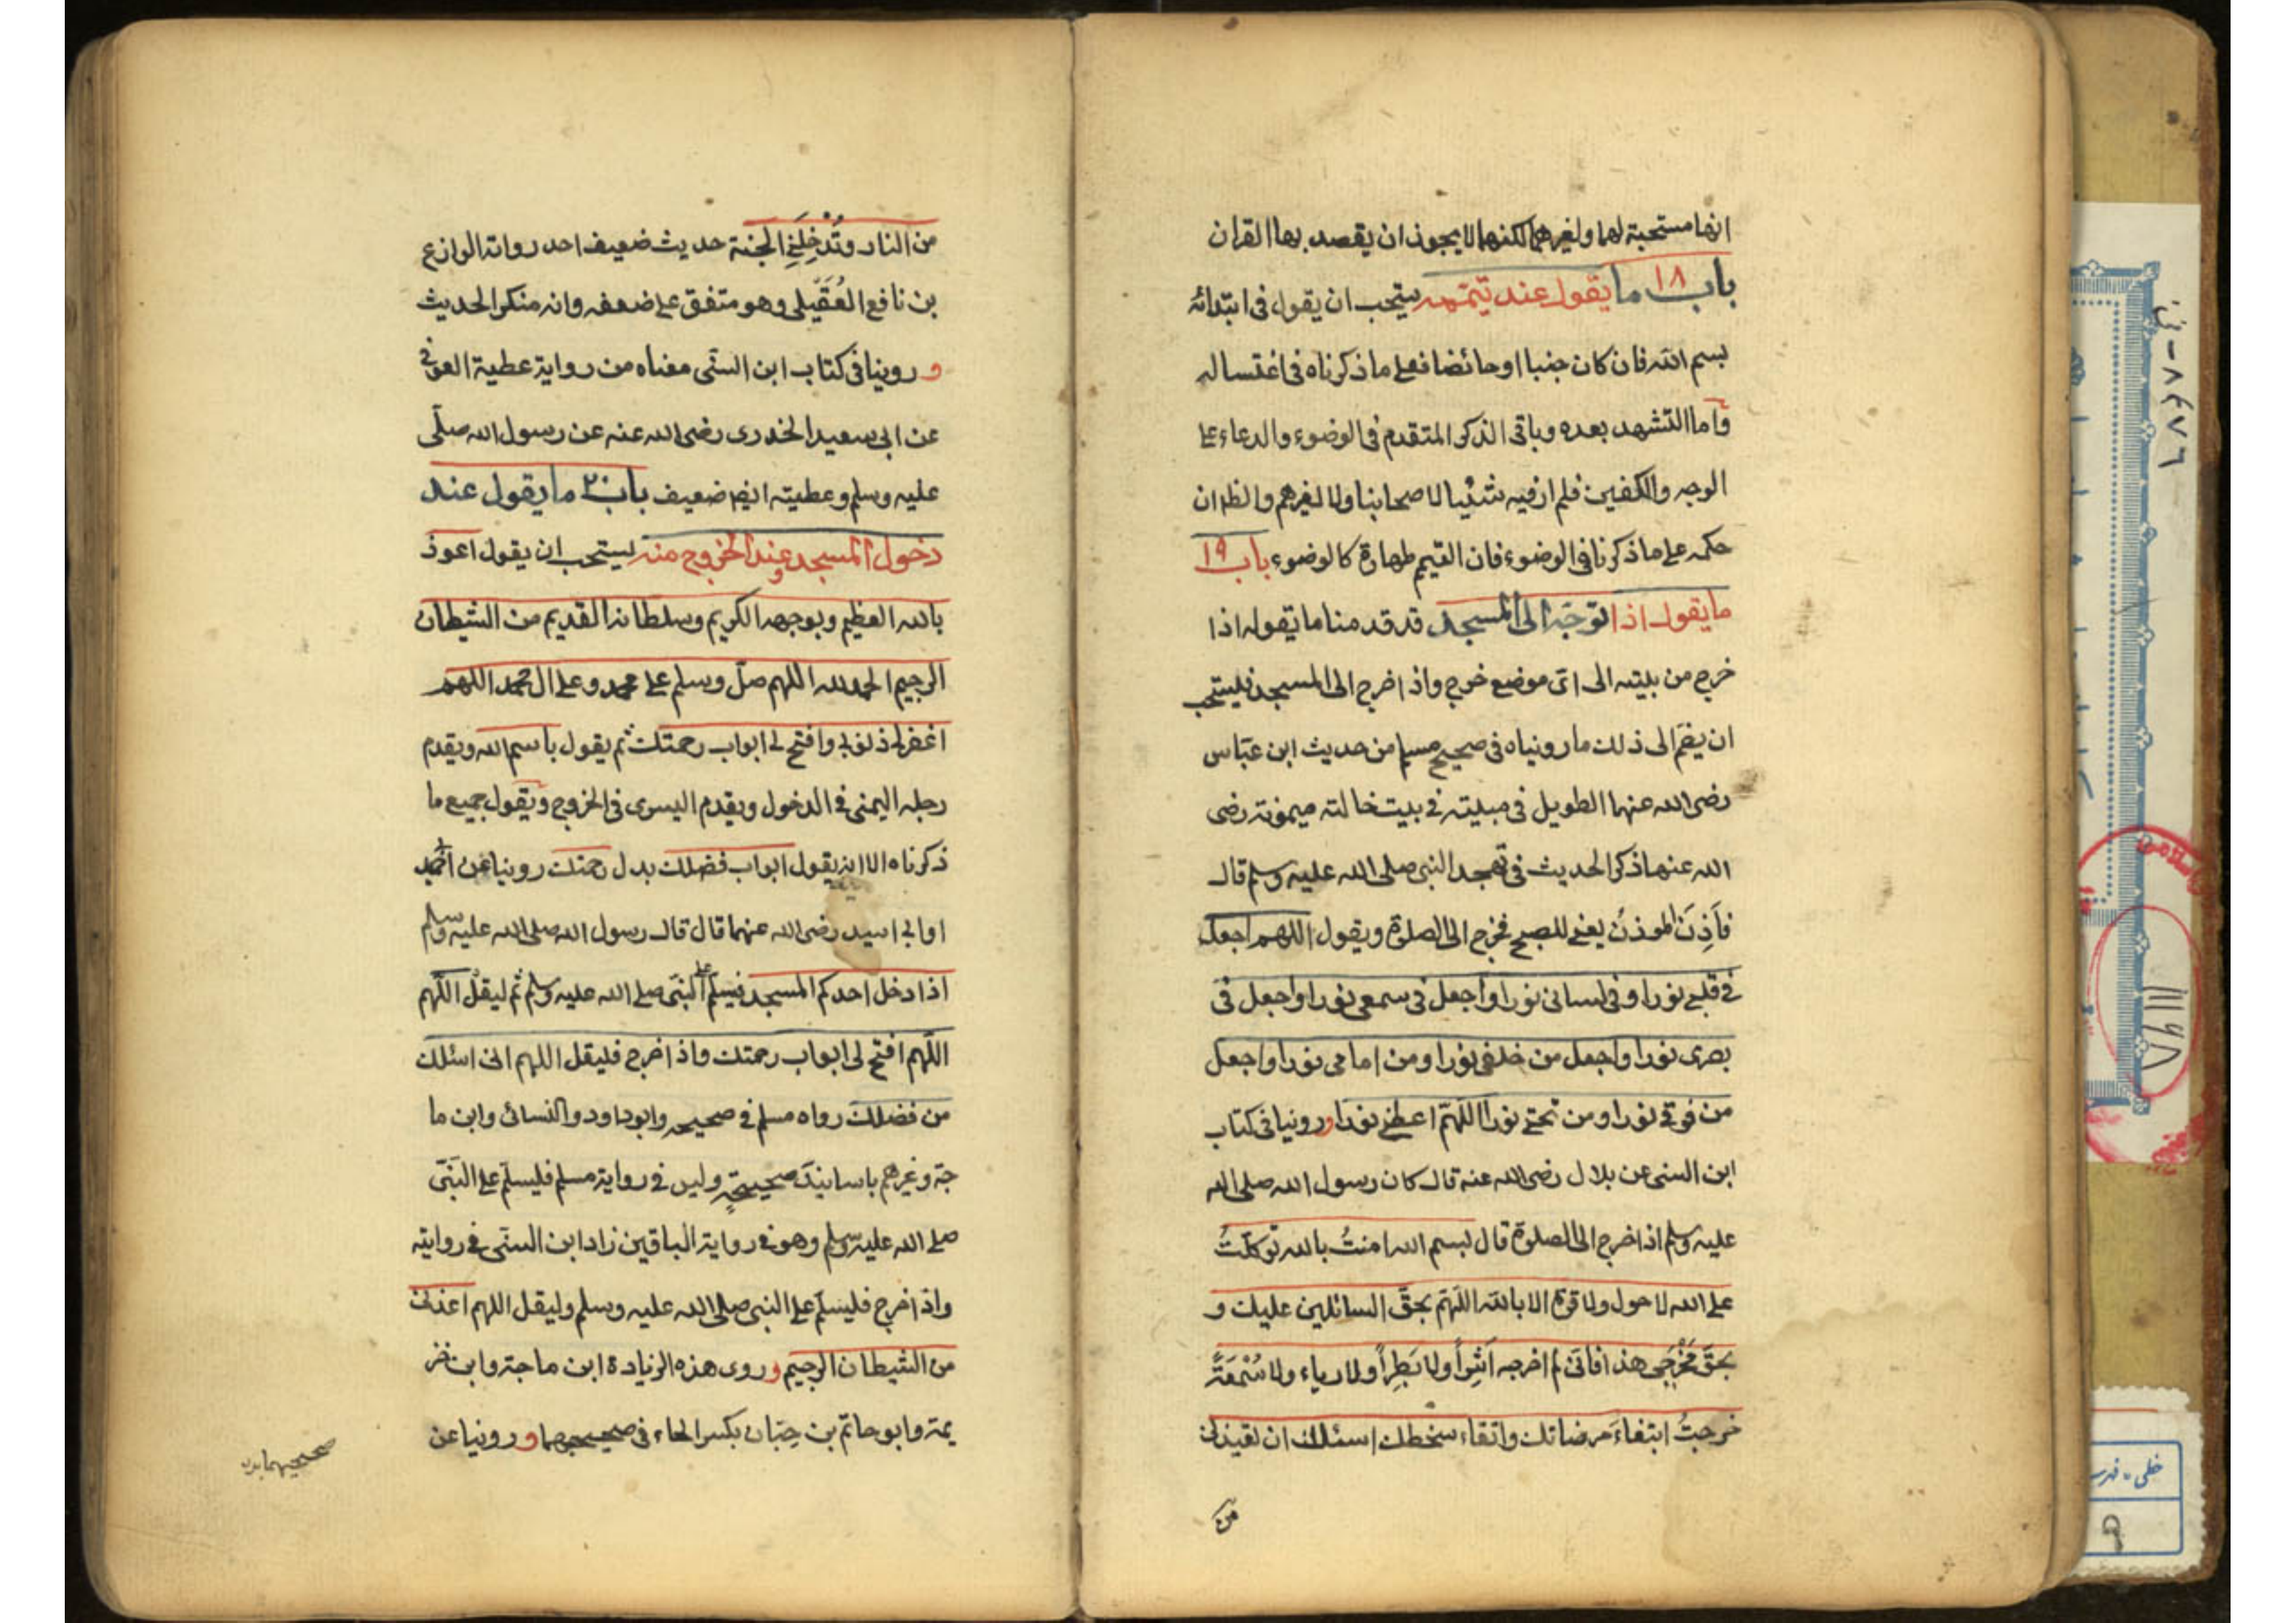 انها مستحبة لهما ولغيرهما لكنهما لا يجوز ان يقصد بها القران
باب ١٨ ما يقول عند تيممه يستحب ان يقول فى ابتدائه
بسم الله فان كان جنبا او حائضا فعلى ما ذكرناه فى اغتساله
واما التشهد بعده وباقى الذكر المتقدم فى الوضوء والدعاء على
الوجه والكفين فلم ار فيه شئيا لاصحابنا ولا لغيرهم والظ ان
حكمه على ما ذكرنا فى الوضوء فان التيمم طهارة كالوضوء باب ١٩
ما يقول اذا توجّه الى المسجد قد قدمنا ما يقوله اذا
خرج من بيته الى اى موضع خرج واذا خرج الى المسجد فليستحب
ان يضمّ الى ذلك ما رويناه فى صحيح مسلم من حديث ابن عبّاس
رضى الله عنهما الطويل فى مبيته فى بيت خالته ميمونة رضى
الله عنها ذكر الحديث فى تهجد النبى صلى الله عليه وسلم قال
فأذِنَ المؤذنُ يعنى للصبح فخرج الى الصلوة ويقول اللهم اجعل
فى قلبى نورا وفى لسانى نورا واجعل فى سمعى نورا واجعل فى
بصرى نورا واجعل من خلفى نورا ومن امامى نورا واجعل
من فوقى نورا ومن تحتى نورا اللّهمّ اعطنى نورًا وروينا فى كتاب
ابن السنى عن بلال رضى الله عنه قال كان رسول الله صلى الله
عليه وسلم اذا خرج الى الصلوة قال بسم الله امنتُ بالله توكلتُ
على الله لا حول ولا قوة الا بالله اللّهمّ بحقّ السائلين عليك و
بحقّ مَخْرَجى هذا فانّى لم اخرجه اَشِراً ولا بَطِراً ولا رياء ولا سُمْعَةً
خرجتُ ابتغاءَ مرضاتك واتقاء سخطك اسئلك ان تعيذنى
من
من النار وتُدْخِلَنِى الجنة حديث ضعيف احد رواته الوازع
بن نافع العُقَيلى وهو متفق على ضعفه وانه منكر الحديث
و روينا فى كتاب ابن السنّى معناه من رواية عطية العوفى
عن ابى سعيد الخدرى رضى الله عنه عن رسول الله صلّى
عليه وسلم وعطيته ايضا ضعيف باب ٢٠ ما يقول عند
دخول المسجد وعند الخروج منه يستحب ان يقول اعوذ
بالله العظيم وبوجهه الكريم وسلطانه القديم من الشيطان
الرجيم الحمد لله اللهم صلّ وسلم على محمد وعلى ال محمد اللهم
اغفر لى ذنوبى وافتح لى ابواب رحمتك ثم يقول باسم الله ويقدم
رجله اليمنى فى الدخول ويقدم اليسرى فى الخروج ويقول جميع ما
ذكرناه الا انه يقول ابواب فضلك بدل رحمتك روينا عن احميد
او ابى اسيد رضى الله عنهما قال قال رسول الله صلى الله عليه وسلم
اذا دخل احدكم المسجد فيسلم على النبى صلى الله عليه وسلم ثم ليقل اللّهم
اللّهم افتح لى ابواب رحمتك واذا خرج فليقل اللهم انى اسئلك
من فضلك رواه مسلم فى صحيحه وابو داود والنسائى وابن ما
جة وغيرهم باسانيد صحيحة وليس فى رواية مسلم فليسلّم على النبّى
صلى الله عليه وسلم وهو فى رواية الباقين زاد ابن السنّى فى روايته
واذا خرج فليسلّم على النبى صلى الله عليه وسلم وليقل اللهم اعذنى
من الشيطان الرجيم وروى هذه الزيادة ابن ماجة وابن خز
يمة وابو حاتم بن حِبّان بكسر الحاء فى صحيحيهما وروينا عن
صحيحيهما بدن